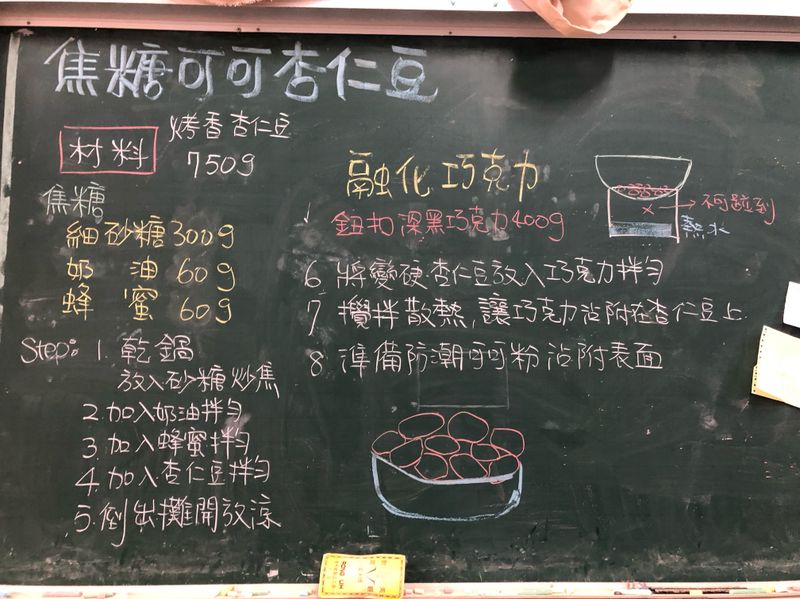 焦糖可可杏仁豆
材料
烤香杏仁豆
750g
焦糖
細砂糖300g
奶油60g
蜂蜜60g
Step: 1. 乾鍋
放入砂糖炒焦
2. 加入奶油拌勻
3. 加入蜂蜜拌勻
4. 加入杏仁豆拌勻
5. 倒出攤開放涼
融化巧克力
鈕扣深黑巧克力400g
不可碰到
熱水
6. 將變硬杏仁豆放入巧克力拌勻
7. 攪拌散熱,讓巧克力沾附在杏仁豆上
8. 準備防潮可可粉沾附表面